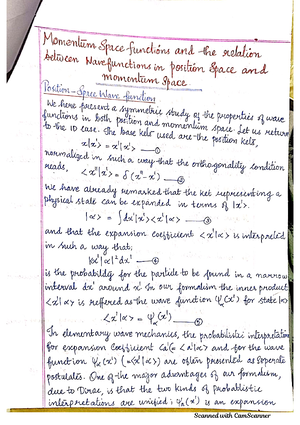 Momentum Space functions and the relation
between Wavefunctions in position Space and
momentum Space
Position-Space Wave-function
We here present a symmetric study of the properties of wave
functions in both position and momentum space. Let us return
to the 1D case. The base kets used are the position kets,
x|x'> = x'|x'> — ①
normalized in such a way that the orthogonality condition
reads, <x"|x'> = δ(x"-x') — ②
We have already remarked that the ket representing a
physical state can be expanded in terms of |x'>.
|α> = ∫dx'|x'><x'|α> — ③
and that the expansion coefficient <x'|α> is interpreted
in such a way that,
|<x'|α>|² dx' — ④
is the probability for the particle to be found in a narrow
interval dx' around x'. In our formalism the inner product
<x'|α> is reffered as the wave function ψα(x') for state |α>
<x'|α> = ψα(x') — ⑤
In elementary wave mechanics, the probabilistic interpretation
for expansion Coefficient Ca'(= <a'|α>) and for the wave
function ψα(x') (=<x'|α>) are often presented as seperate
postulates. One of the major advantages of our formalism,
due to Dirac, is that the two kinds of probabilistic
interpretations are unified; ψα(x') is an expansion
Scanned with CamScanner